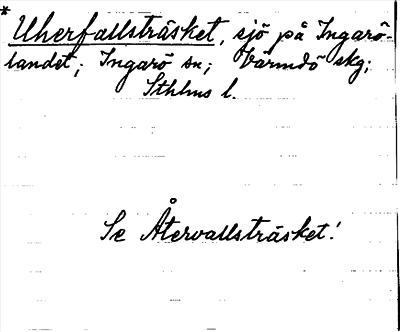 * Uherfallsträsket, sjö på Ingarö-
landet; Ingarö sn; Värmdö skg;
Sthlms l.
Se Återvallsträsket!